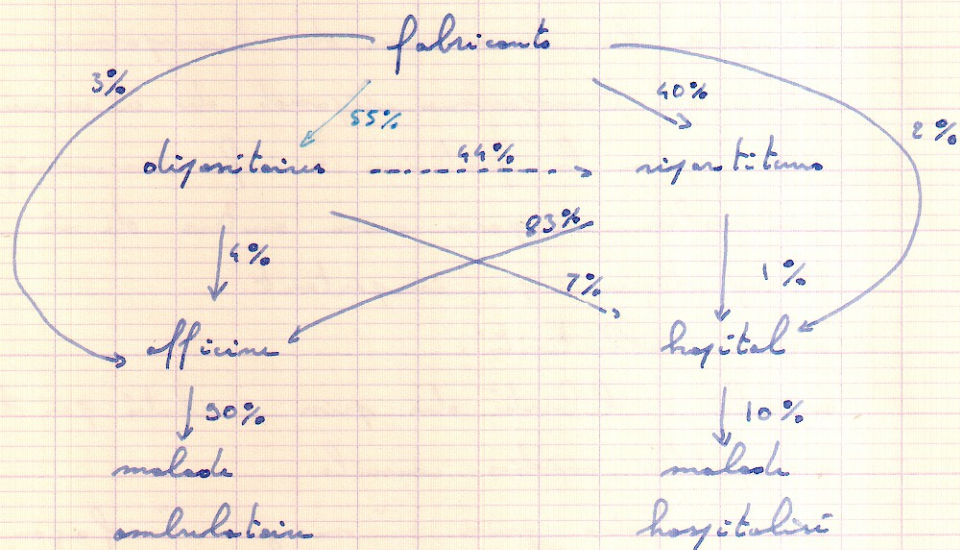 fabricants
3%
40%
55%
2%
dépositaires
44%
répartiteurs
83%
4%
7%
1%
officine
hopital
90%
10%
malade
malade
ambulatoire
hospitalisé